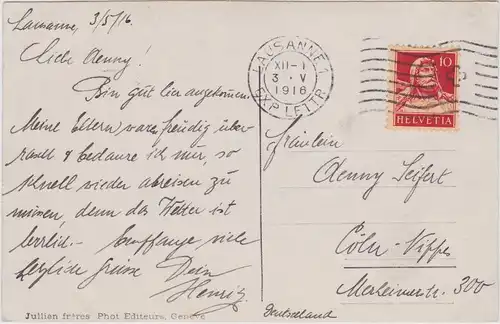 Lausanne, 3/5/16.
Liebe Aenny!
Bin gut hier angekommen.
Meine Eltern waren freudig über-
rascht & bedaure ich nur, so
schnell wieder abreisen zu
müssen, denn das Wetter ist
herrlich.- Empfange viele
herzliche Grüsse Dein
Henry
LAUSANNE 1
XII-1
3 · V
1916
EXP. LETTR.
10
HELVETIA
Fräulein
Aenny Seifert
Cöln-Nippes
300
Deutschland
Jullien frères Phot Editeurs, Genève